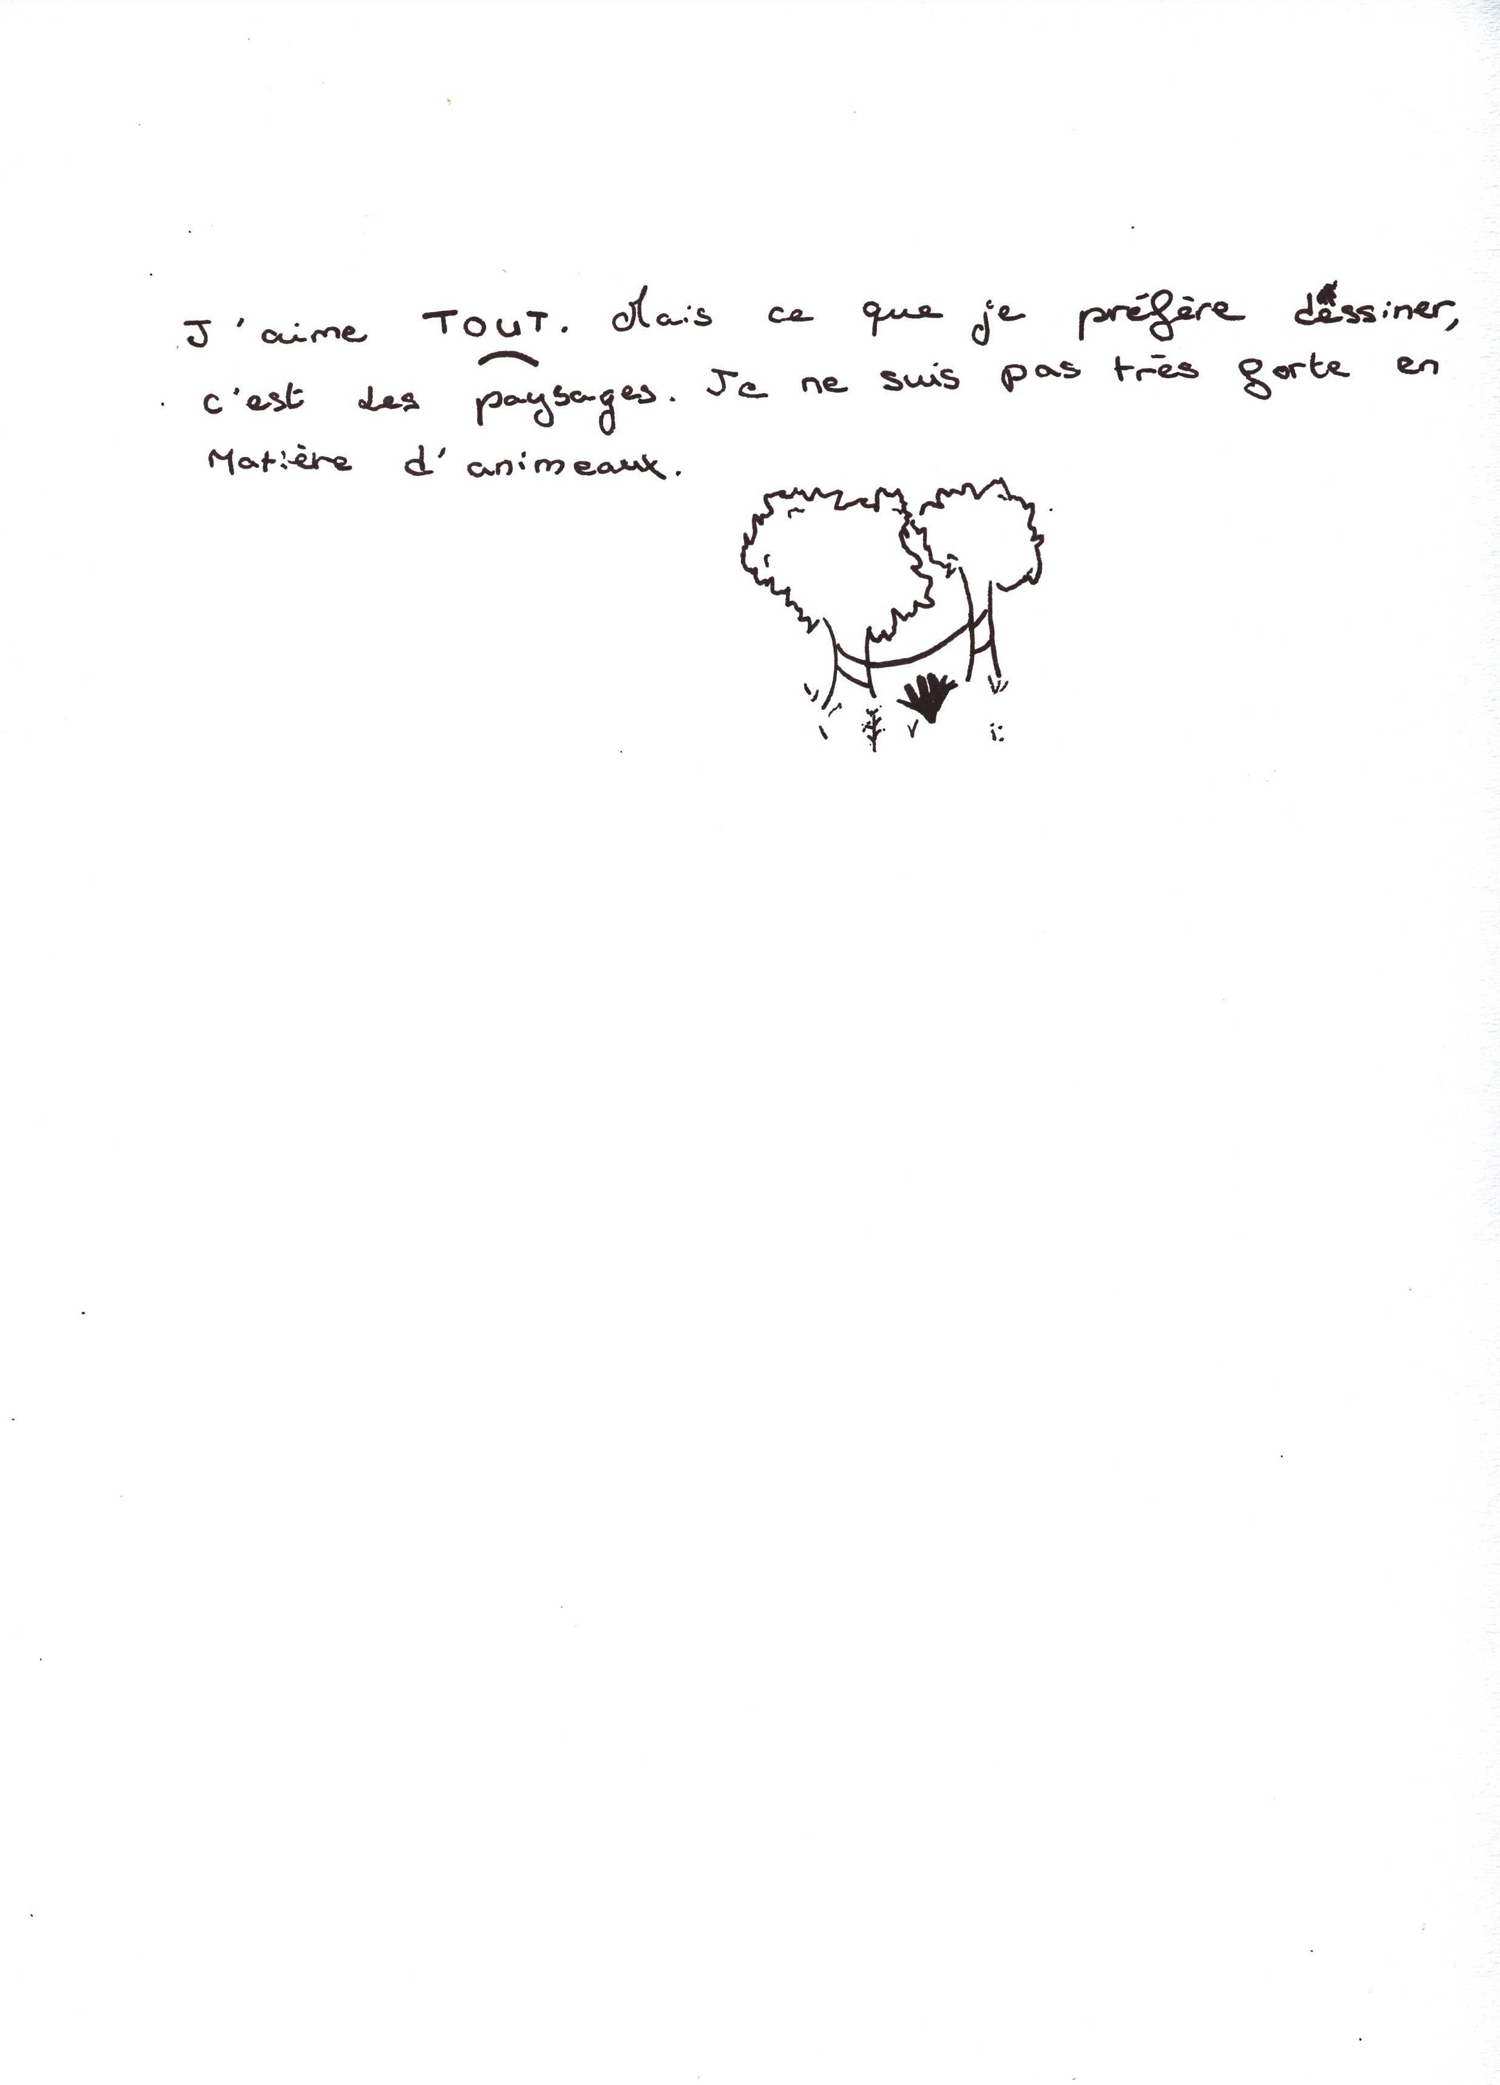 J'aime TOUT. Mais ce que je préfère dessiner,
c'est des paysages. Je ne suis pas très forte en
Matière d'animeaux.